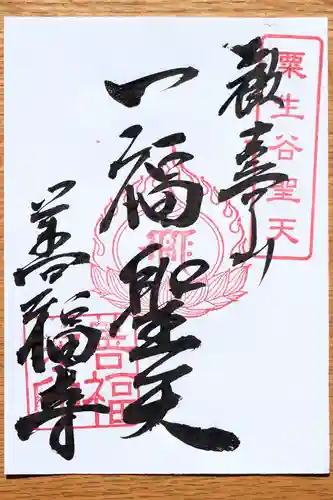 粟生谷聖天
歓喜山
一福聖天
善福寺
善福寺印